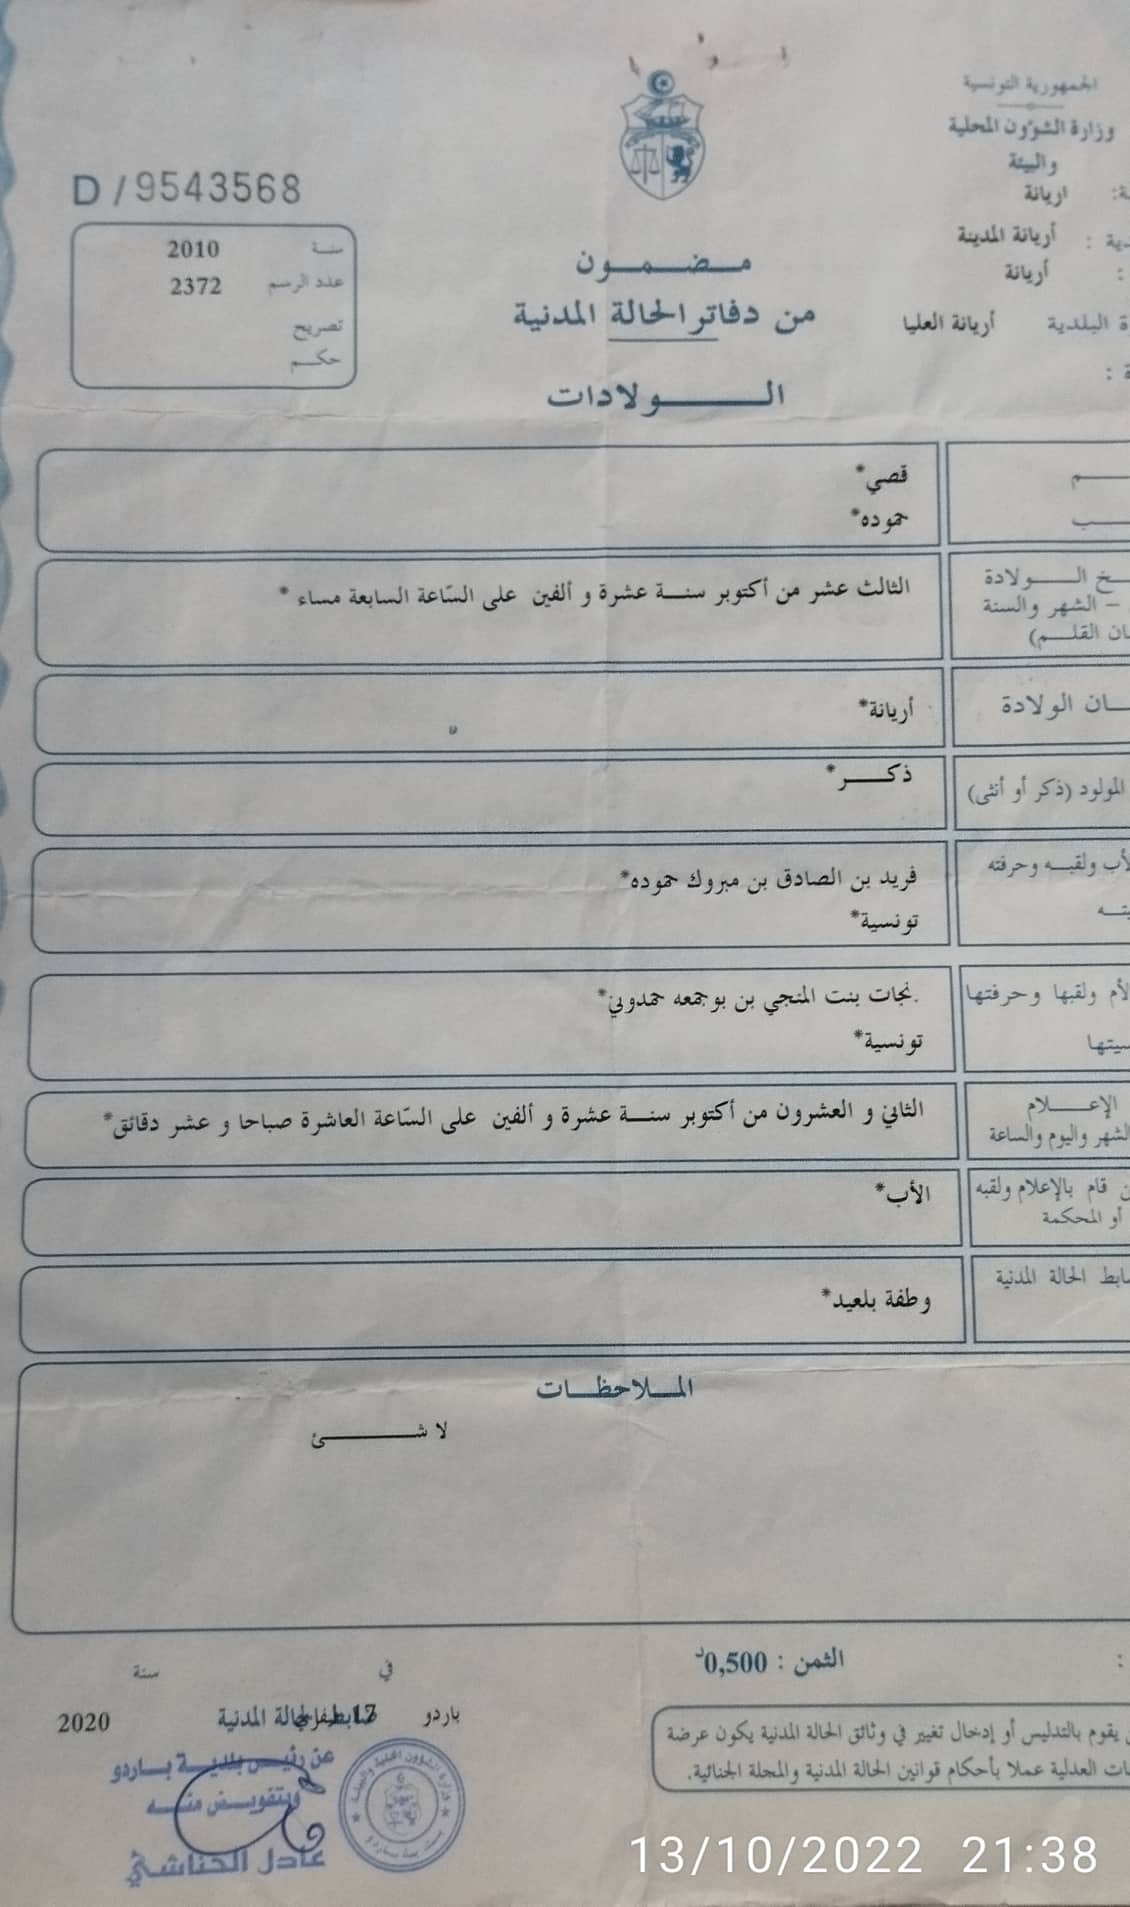 الجمهورية التونسية
وزارة الشؤون المحلية
والبيئة
ة: اريانة
دية : أريانة المدينة
: أريانة
ة البلدية أريانة العليا
ة :
D / 9543568
سنة 2010
عدد الرسم 2372
تصريح
حكم
مضمون
من دفاتر الحالة المدنية
الولادات
م قصي*
ب حموده*
خ الولادة الثالث عشر من أكتوبر سنة عشرة و ألفين على السّاعة السابعة مساء *
– الشهر والسنة
ان القلم)
ان الولادة أريانة*
المولود (ذكر أو أنثى) ذكر*
لأب ولقبه وحرفته فريد بن الصادق بن مبروك حموده*
يته تونسية*
لأم ولقبها وحرفتها نجات بنت المنجي بن بوجمعه حمدوني*
سيتها تونسية*
الإعلام الثاني و العشرون من أكتوبر سنة عشرة و ألفين على السّاعة العاشرة صباحا و عشر دقائق*
لشهر واليوم والساعة
ن قام بالإعلام ولقبه الأب*
أو المحكمة
ابط الحالة المدنية وطفة بلعيد*
الملاحظات
لا شئ
: الثمن : 0,500د
ن يقوم بالتدليس أو إدخال تغيير في وثائق الحالة المدنية يكون عرضة
ات العدلية عملا بأحكام قوانين الحالة المدنية والمجلة الجنائية.
في سنة
باردو 17 2020
ضابط الحالة المدنية
عن رئيس بلدية باردو
وبتفويض منه
عادل الحناشي
13/10/2022 21:38